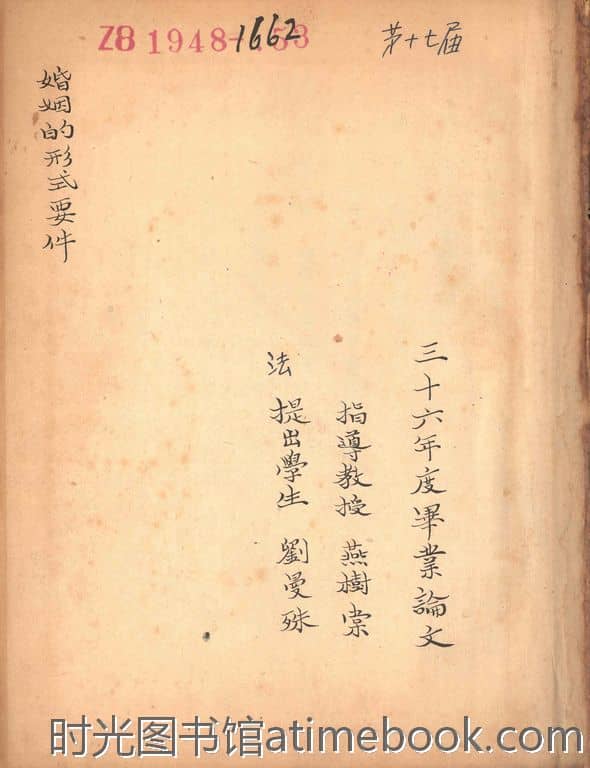 Z8 1948-1662
第十七届
婚姻的形式要件
三十六年度畢業論文
指導教授 燕樹棠
法 提出學生 劉曼殊
时光图书馆atimebook.com